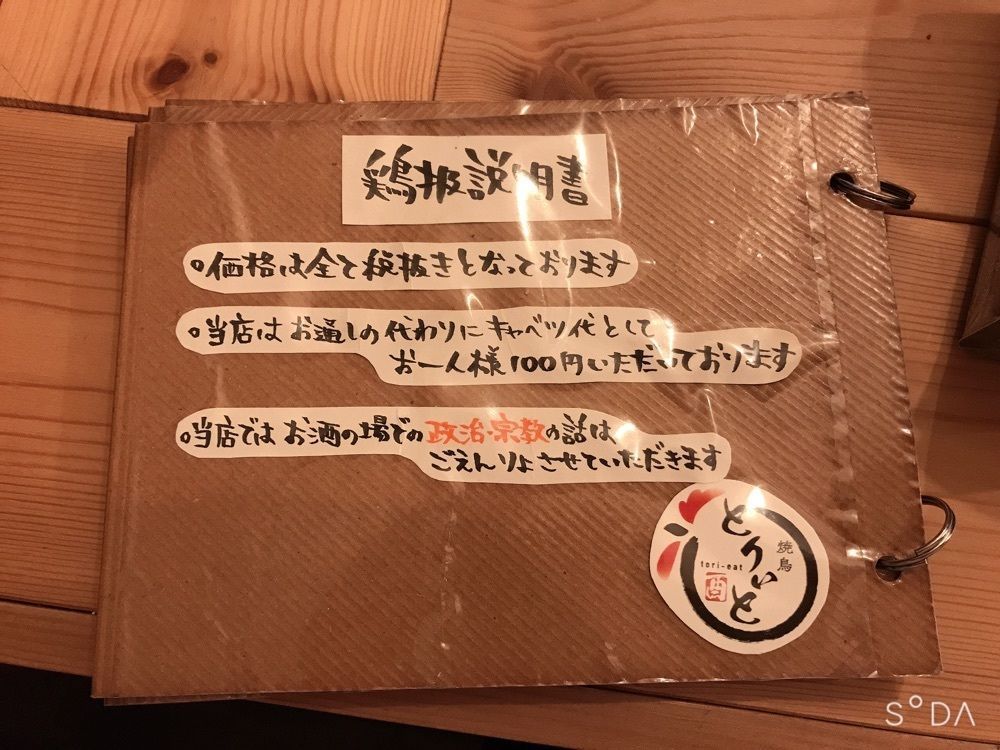 鶏扱説明書
○価格は全て税抜きとなっております
○当店はお通しの代わりにキャベツ代として
お一人様100円いただいております
○当店ではお酒の場での政治・宗教の話は
ごえんりょさせていただきます
焼鳥
とりいと
tori-eat
SODA